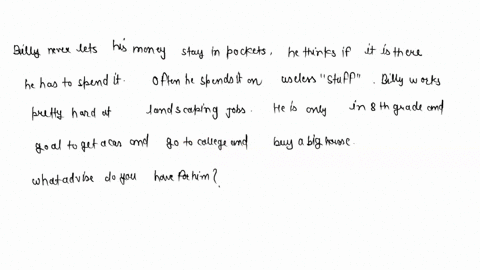 Billy never lets his money stay in pockets, he thinks if it is there
he has to spend it. Often he spends it on useless "stuff". Billy works
pretty hard at landscaping jobs. He is only in 8th grade and
goal to get a car and go to college and buy a big house.
what advise do you have for him?